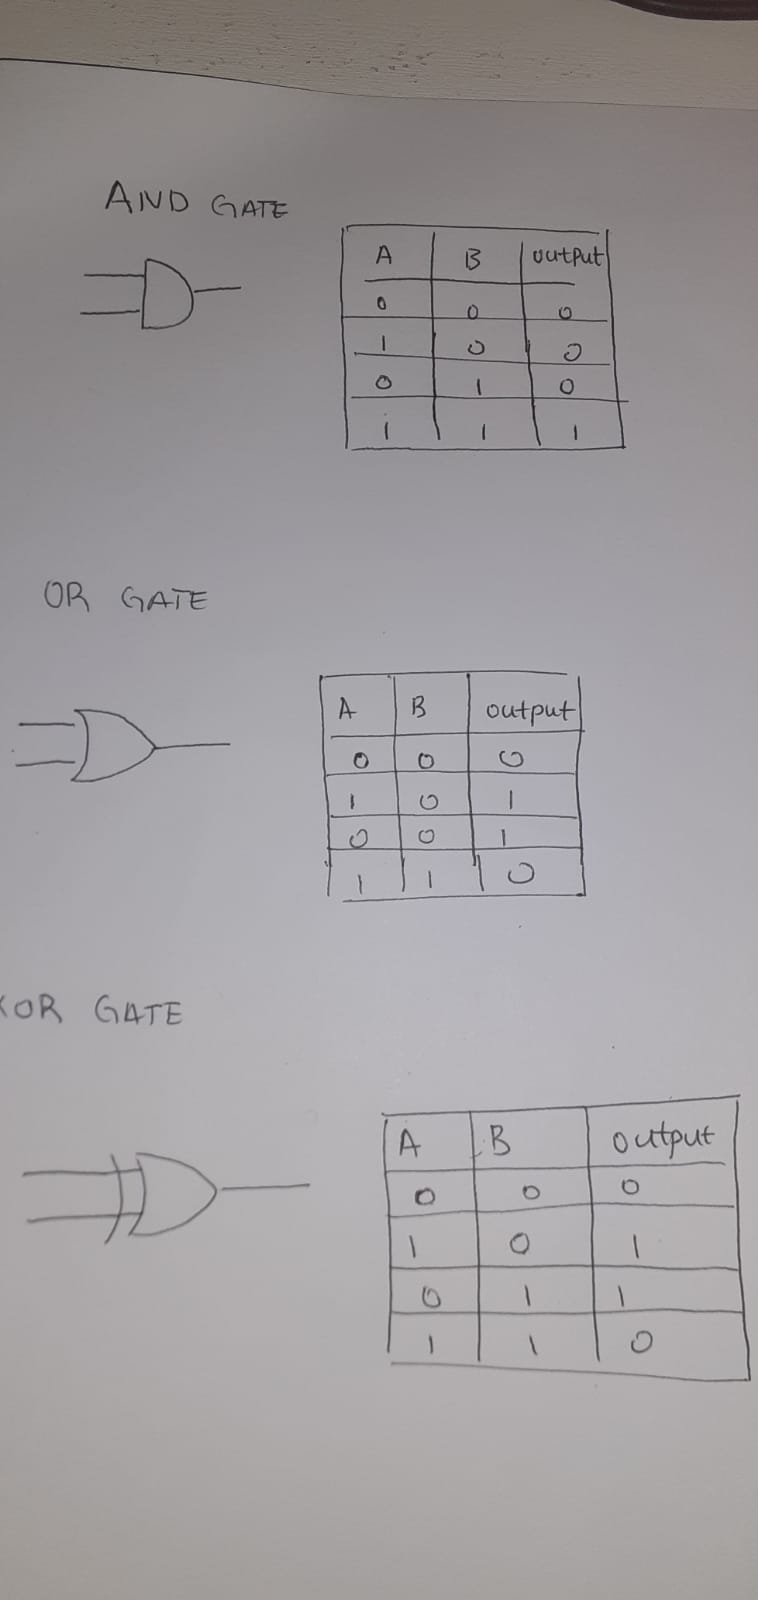 AND GATE
A B output
0 0 0
1 0 0
0 1 0
1 1 1
OR GATE
A B output
0 0 0
1 0 1
0 0 1
1 1 0
XOR GATE
A B output
0 0 0
1 0 1
0 1 1
1 1 0